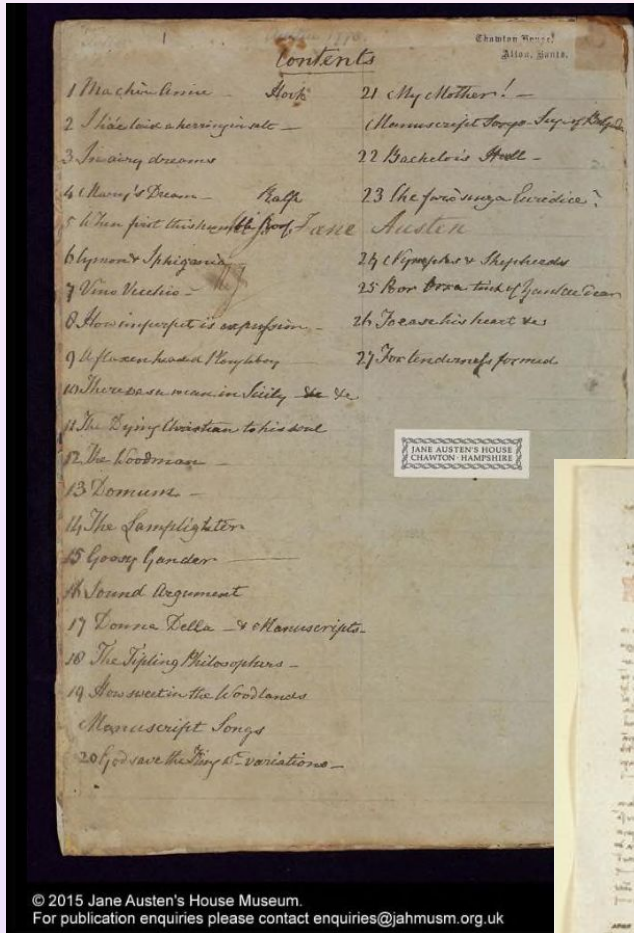 Chawton House,
Alton, Hants.
Contents
1 Ma chère Amie - Hook
2 I hae laid a herring in salt -
3 In airy dreams
4 Mary's Dream - Ralph
5 When first this humble Roof
6 Cymon & Iphigenia
7 Vino Vecchio -
8 How imperfect is expression -
9 A flaxen headed Ploughboy
10 There was a man in Sicily &c
11 The Dying Christian to his soul
12 The Woodman -
13 Domum -
14 The Lamplighter
15 Goosy Gander
16 Sound Argument
17 Donna Della - & Manuscripts -
18 The Tipling Philosophers -
19 How sweet in the Woodlands
Manuscript Songs
20 God save the King & variations -
21 My Mother! -
Manuscript Songs
22 Bachelors Hall -
23 Che farò senza Euridice?
Jane Austen
24 Nymphs & Shepherds
25 of Yankee
26 To ease his heart &c
27 For tenderness formed
JANE AUSTEN'S HOUSE
CHAWTON · HAMPSHIRE
© 2015 Jane Austen's House Museum.
For publication enquiries please contact enquiries@jahmusm.org.uk